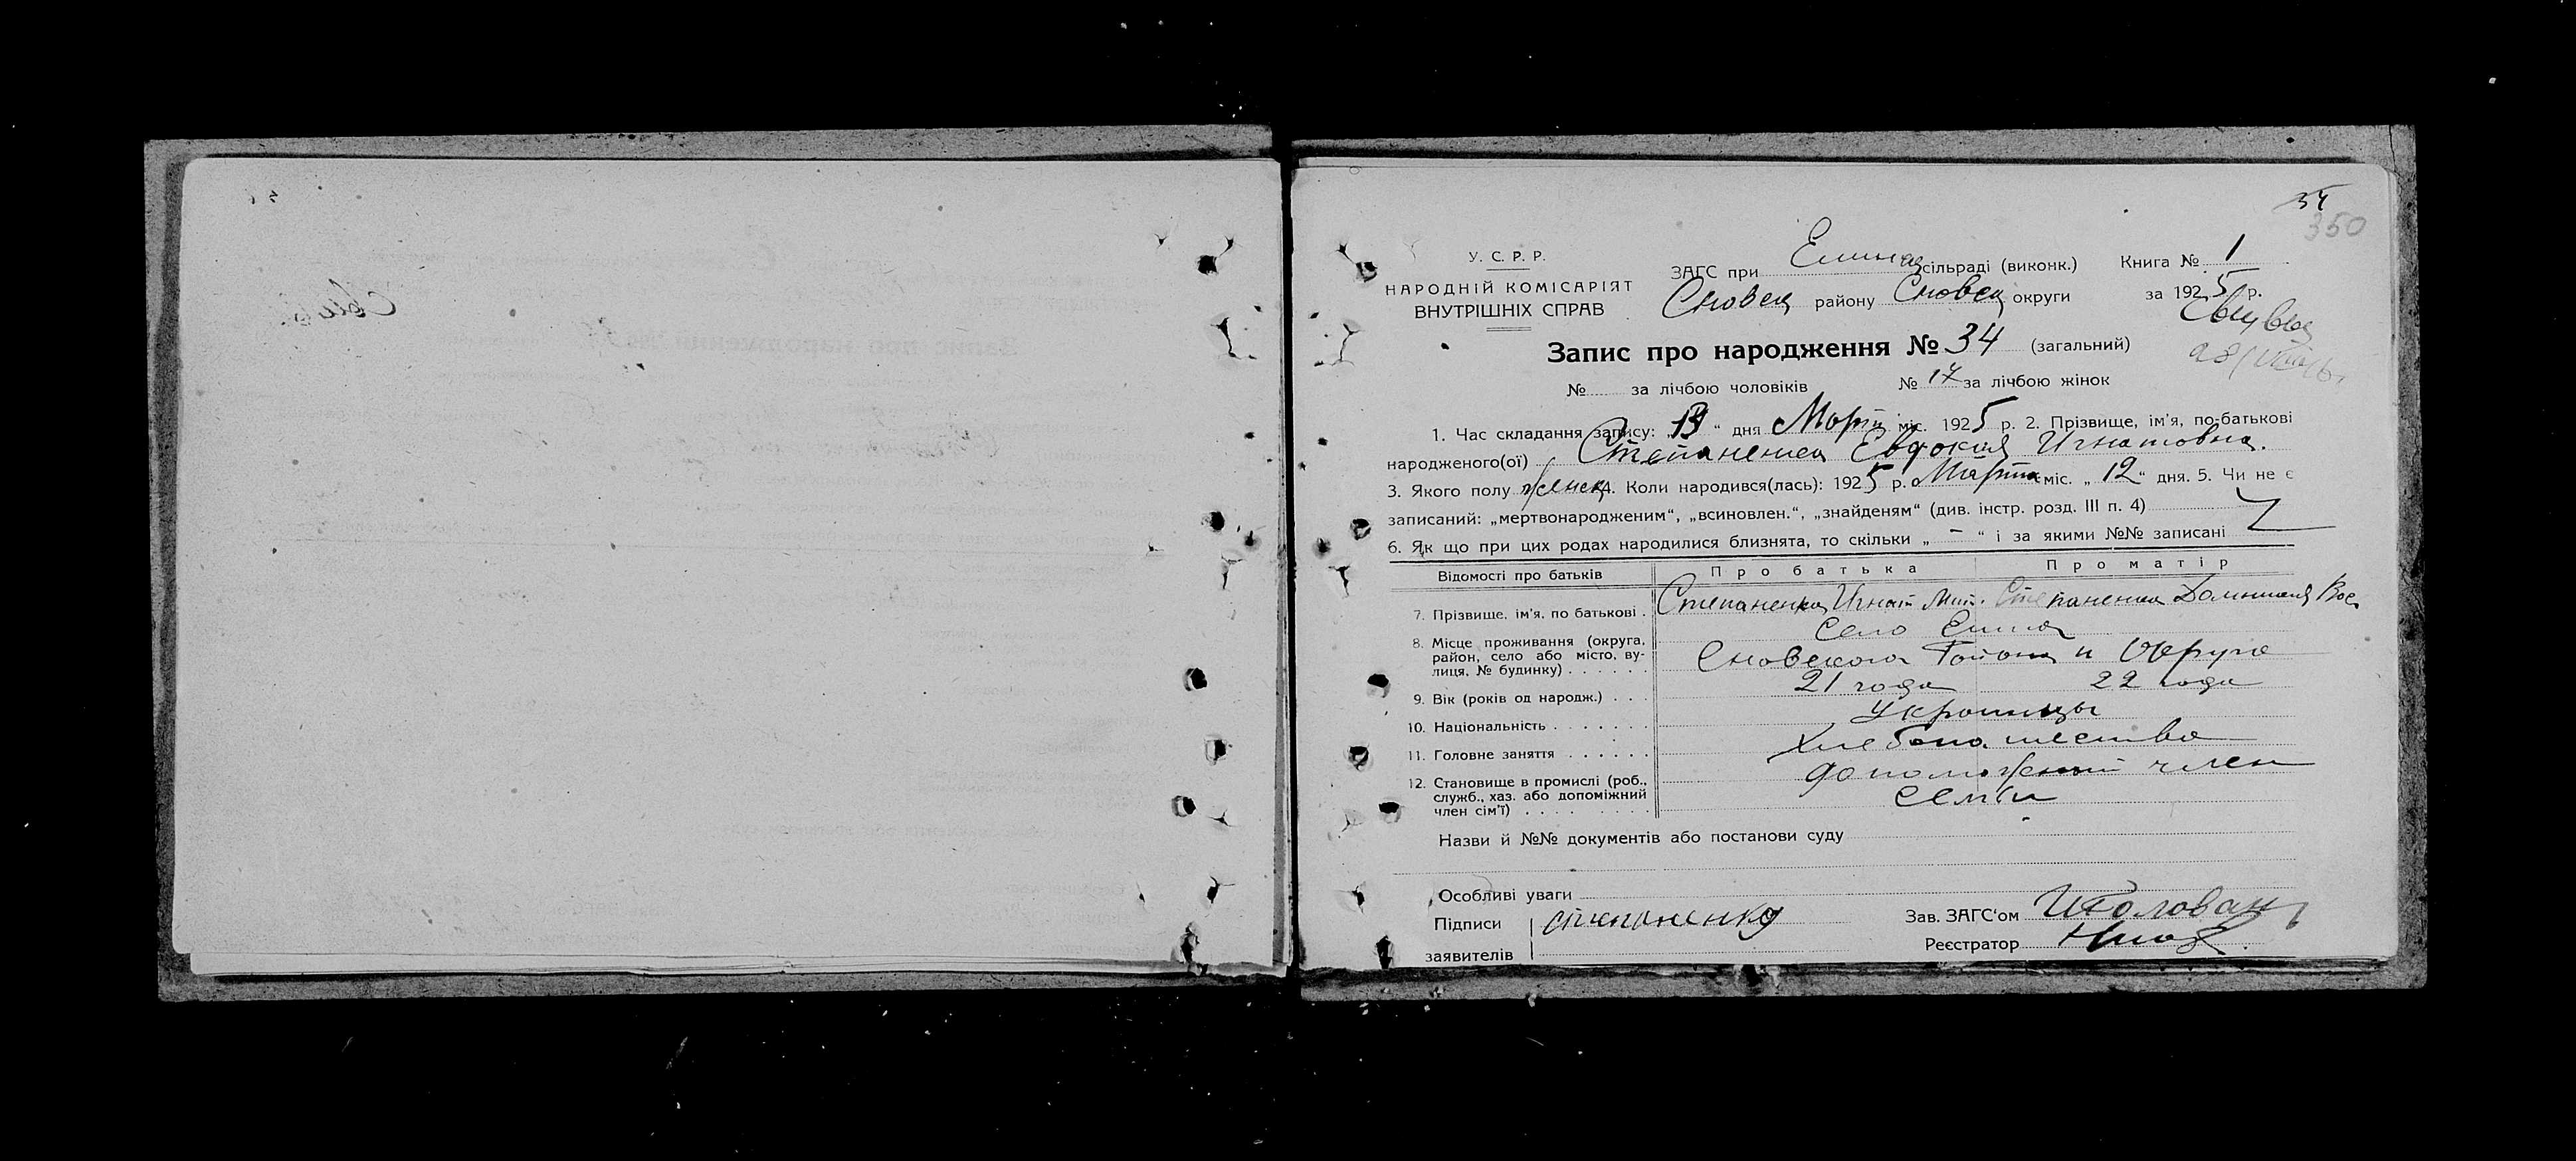 34
350
У. С. Р. Р.
НАРОДНІЙ КОМІСАРІЯТ
ВНУТРІШНІХ СПРАВ
ЗАГС при Елинск сільраді (виконк.) Книга № 1
Сновск району Сновск округи за 1925 р.
Запис про народження № 34 (загальний)
№ за лічбою чоловіків № 17 за лічбою жінок
1. Час складання запису: „13“ дня Марта міс. 1925 р. 2. Прізвище, ім'я, по-батькові
народженого(ої) Степаненко Евдокия Игнатовна.
3. Якого полу женск 4. Коли народився(лась): 1925 р. Марта міс. „12“ дня. 5. Чи не є
записаний: „мертвонародженим“, „всиновлен.“, „знайденям“ (див. інстр. розд. III п. 4)
6. Як що при цих родах народилися близнята, то скільки „ – “ і за якими №№ записані
Відомості про батьків Про батька Про матір
7. Прізвище, ім'я, по батькові . Степаненко Игнат Мит. Степаненко Домникия Вас
8. Місце проживання (округа, район, село або місто, вулиця, № будинку) . . . . . . Село Елино
Сновского Района и Округа
9. Вік (років од народж.) . . . 21 года 22 года
10. Національність . . . . . . . . Украинцы
11. Головне заняття . . . . . . Хлебопашество
12. Становище в промислі (роб., служб., хаз. або допоміжний член сім'ї) . . . . . . . . . допоможений член
семьи
Назви й №№ документів або постанови суду
Особливі уваги
Підписи заявителів степаненко
Зав. ЗАГС'ом
Реєстратор